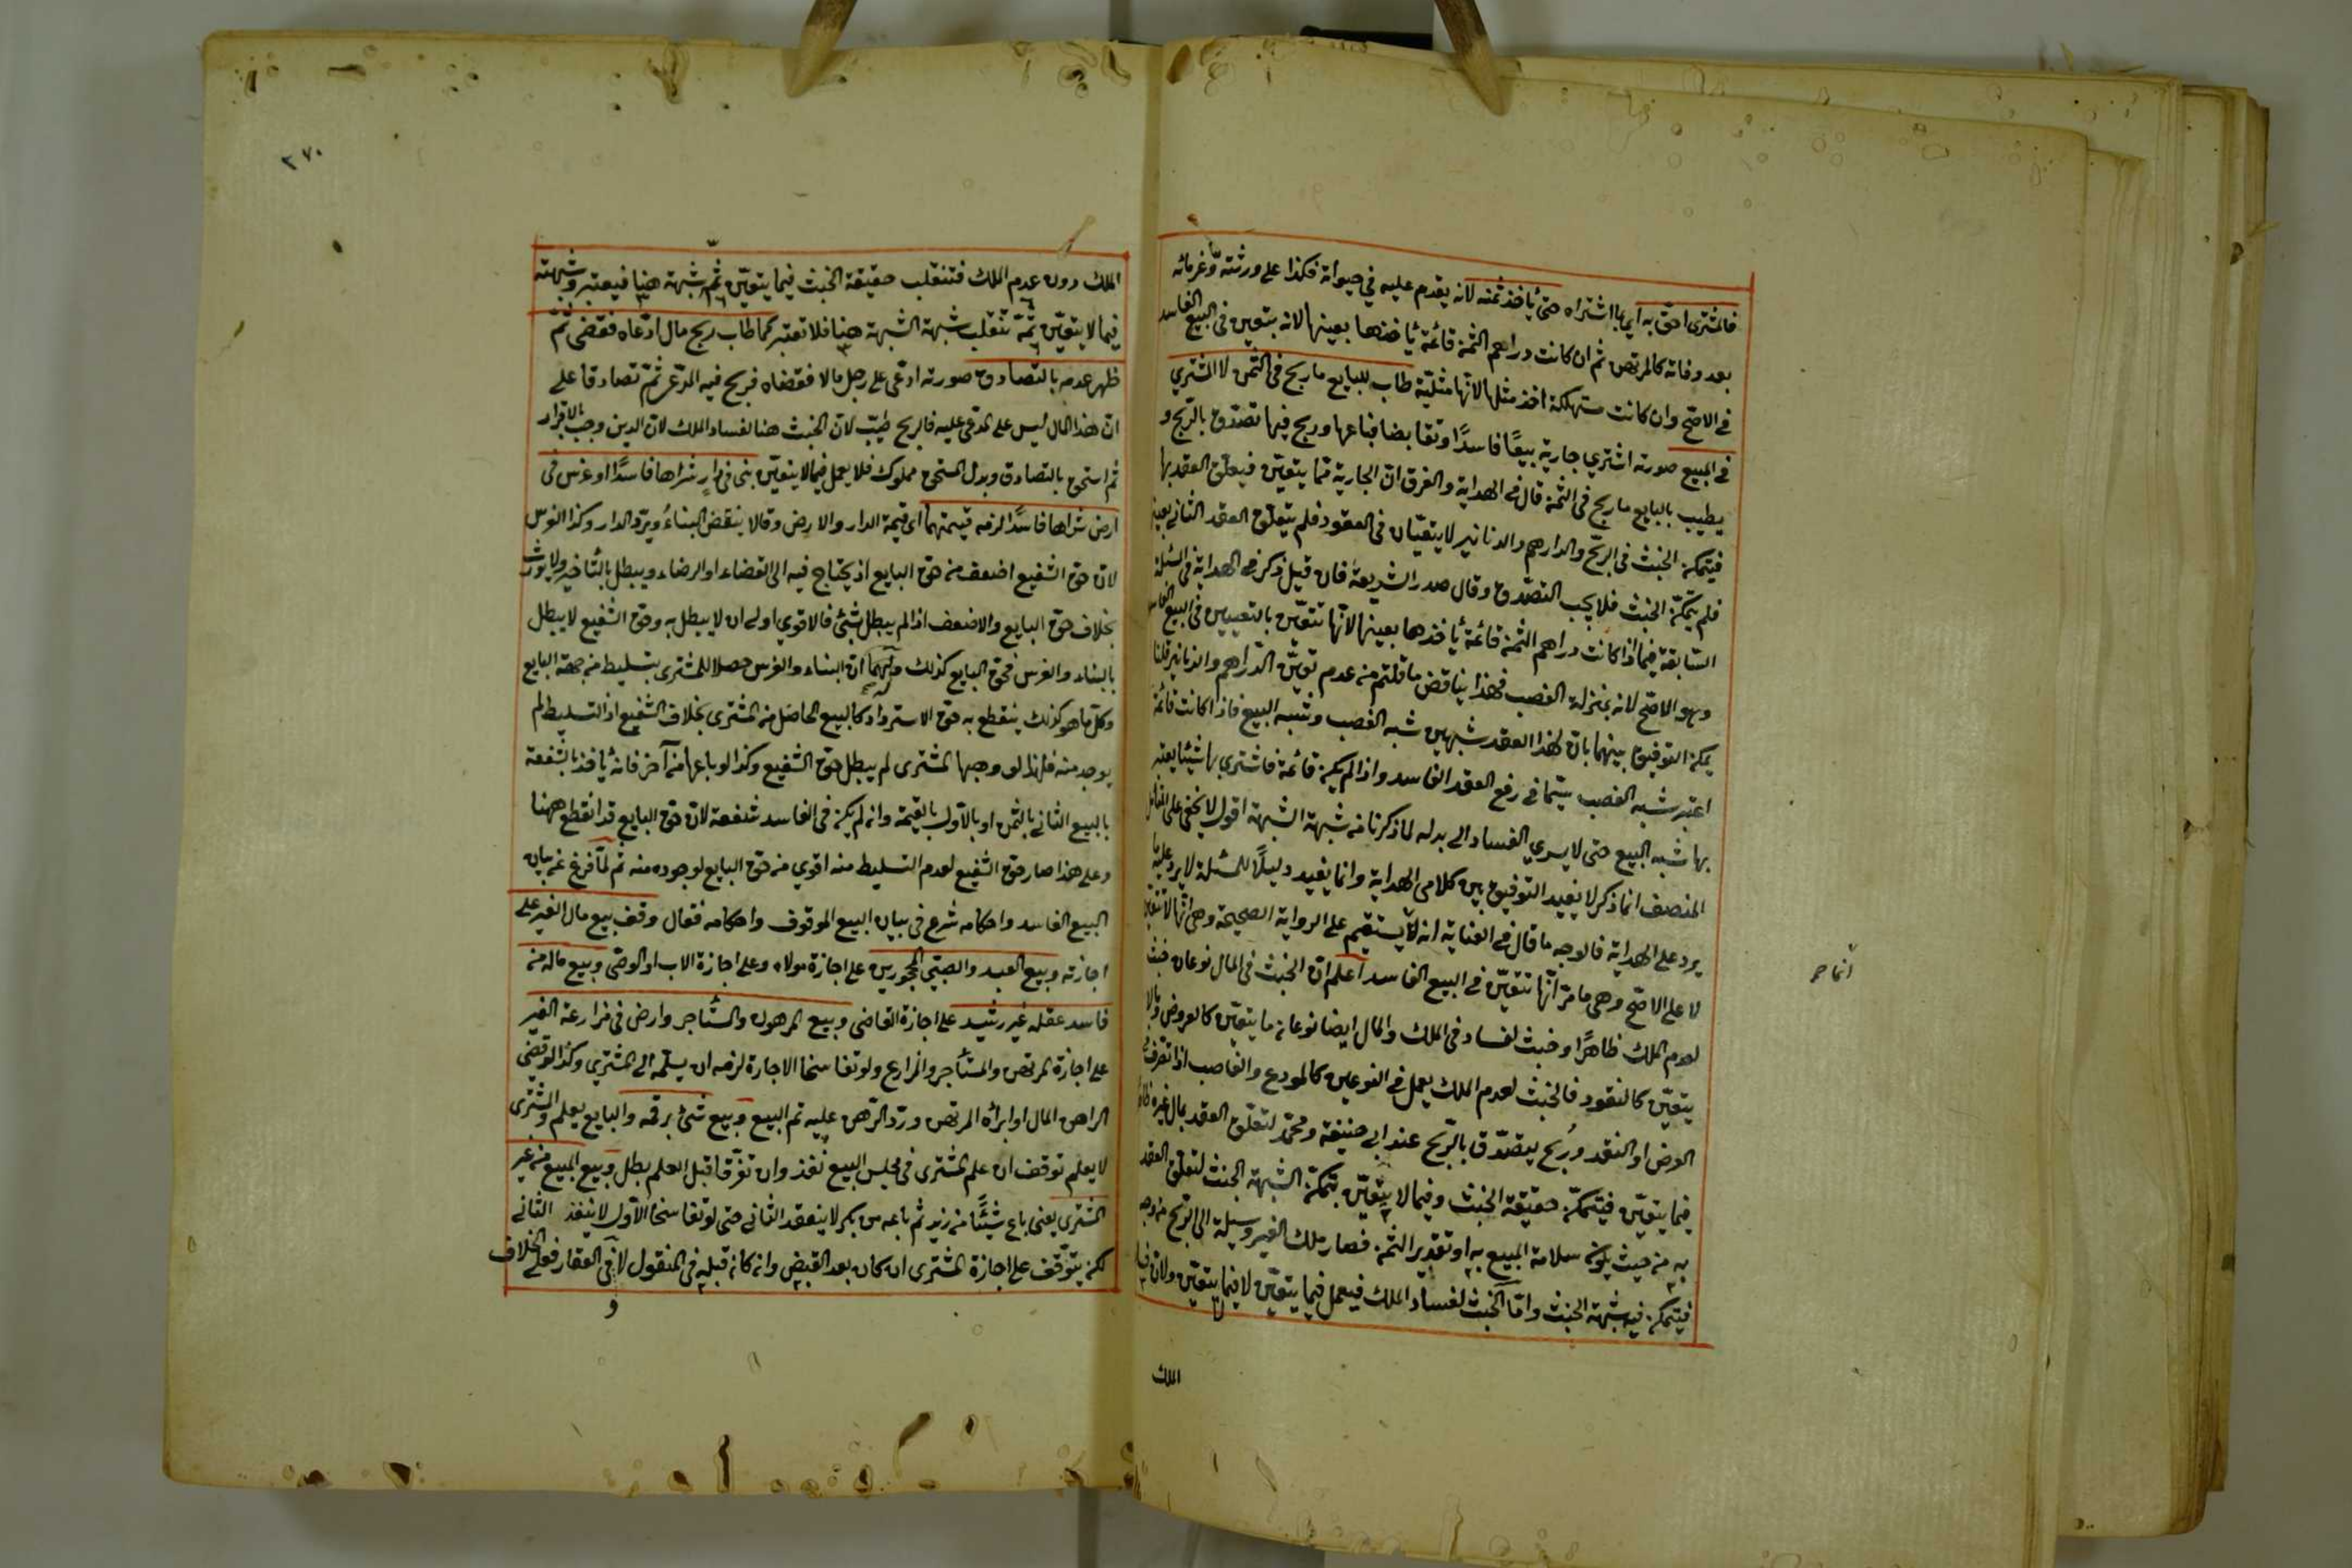 فالمشتري احق به اي بما اشتراه حتى يأخذ ثمنه لانه يقدم عليه في حيوته فكذا على ورثته وغرمائه
بعد وفاته كالمرتهن ثم ان كانت دراهم الثمن قائمة يأخذها بعينها لانه يتعين في البيع الفاسد
في الاصح وان كانت مستهلكة اخذ مثلها لانها مثلية طاب للبايع ما ربح في الثمن لا المشتري
في المبيع صورته اشتري جارية بيعًا فاسدًا وتقابضا فباعها وربح فيها تصدق بالربح و
يطيب بالبايع ما ربح في الثمن قال في الهداية والفرق ان الجارية مما يتعين فيتعلق العقد بها
فيتمكن الخبث في الربح والدراهم والدنانير لا يتعينان في العقود فلم يتعلق العقد الثاني بعينها
فلم يتمكن الخبث فلا يجب التصدق وقال صدر الشريعة فان قيل ذكر في الهداية في المسئلة
السابقة فيما اذا كانت دراهم الثمن قائمة يأخذها بعينها لانها تتعين بالتعيين في البيع الفاسد
وهو الاصح لانه بمنزلة الغصب فهذا يناقض ما قلتم من عدم تعين الدراهم والدنانير قلنا
يمكن التوفيق بينهما بان لهذا العقد شبهين شبه الغصب وشبه البيع فاذا كانت قائمة
اعتبر شبه الغصب سيما في رفع العقد الفاسد واذا لم يكن قائمة فاشترى بها شيئا يعتبر
بها شبه البيع حتى لا يسري الفساد الى بدله لما ذكرنا من شبهة الشبهة اقول لا يخفى على المتأمل
المنصف انما ذكر لا يفيد التوفيق بين كلامي الهداية وانما يفيد دليلًا للمسئلة لا يرد عليه ما
يرد على الهداية فالوجه ما قال في العناية انه لا يستقيم على الرواية الصحيحة وهي انها لا تتعين
لا على الاصح وهي ما مر انها تتعين في البيع الفاسد اعلم ان الخبث في المال نوعان خبث
لعدم الملك ظاهرًا وخبث لفساد في الملك والمال ايضا نوعان ما يتعين كالعروض وما لا
يتعين كالنقود فالخبث لعدم الملك يعمل في النوعين كالمودع والغاصب اذا تصرف في
العرض او النقد وربح يتصدق بالربح عند ابي حنيفة ومحمد لتعلق العقد بمال غيره
فيما يتعين فيتمكن حقيقة الخبث وفيما لا يتعين يتمكن الشبهة الخبث لتعلق العقد
به من حيث يكون سلامة المبيع به او تقدير الثمن فصار ملك الغير وسيلة الى الربح من وجه
فيتمكن فيه شبهة الخبث واما الخبث لفساد الملك فيعمل فيما يتعين لا فيما لا يتعين
الملك
انما حر
٢٧٠
الملك دون عدم الملك فتنقلب حقيقة الخبث فيما يتعين ثم شبهة هنا فيعتبر وشبهته
فيما لا يتعين ثمة تنقلب شبهة الشبهة هنا فلا تعتبر كما طاب ربح مال ادعاه فقضى ثم
ظهر عدمه بالتصادق صورته ادعى على رجل مالا فقضاه فربح فيه المدعي ثم تصادقا على
ان هذا المال ليس على المدعى عليه فالربح طيب لان الخبث هنا لفساد الملك لان الدين وجب بالاقرار
ثم استحق بالتصادق وبدل المستحق مملوك فلا يعمل فيما لا يتعين بنى في دار شراها فاسدًا او غرس في
ارض شراها فاسدًا لزمه قيمتهما اى قيمة الدار والارض وقالا ينقض البناء ويرد الدار وكذا الغرس
لان حق الشفيع اضعف من حق البايع اذ يحتاج فيه الى القضاء او الرضاء ويبطل بالتأخير ولا يورث
بخلاف حق البايع والاضعف اذا لم يبطل بشئ فالاقوي اولى ان لا يبطل به وحق الشفيع لا يبطل
بالبناء والغرس فحق البايع كذلك ان البناء والغرس حصلا للمشتري بتسليط من جهة البايع
وكل ما هو كذلك ينقطع به حق الاسترداد كالبيع الحاصل من المشتري بخلاف الشفيع اذ التسليط لم
يوجد منه فلهذا لو وهبها المشتري لم يبطل حق الشفيع وكذا لو باعها من آخر فانه يأخذ بالشفعة
بالبيع الثاني بالثمن او بالاول بالقيمة وان لم يكن في الفاسد شفعة لان حق البايع قد انقطع ههنا
وعلى هذا صار حق الشفيع لعدم التسليط منه اقوي من حق البايع لوجوده منه ثم لما فرغ عن بيان
البيع الفاسد واحكامه شرع في بيان البيع الموقوف واحكامه فقال وقف بيع مال الغير على
اجازته وبيع العبد والصبي المحجورين على اجازة مولاه وعلى اجازة الاب او الوصي وبيع ماله من
فاسد عقله غير رشيد على اجازة القاضي وبيع المرهون والمستأجر وارض في مزارعة الغير
على اجازة المرتهن والمستأجر والمزارع ولو تفاسخا الاجارة لزمه ان يسلمه الى المشتري وكذا لو قضى
الراهن المال او ابرأه المرتهن ورد الرهن عليه تم البيع وبيع شئ برقمه والبايع يعلم والمشتري
لا يعلم توقف ان علم المشتري في مجلس البيع نفذ وان تفرقا قبل العلم بطل وبيع المبيع من غير
المشتري يعني باع شيئًا من زيد ثم باعه من بكر لا ينعقد الثاني حتى لو تفاسخا الاول لا ينفذ الثاني
لكن يتوقف على اجازة المشتري ان كان بعد القبض وان كان قبله في المنقول لا وفي العقار فعلى الخلاف
و